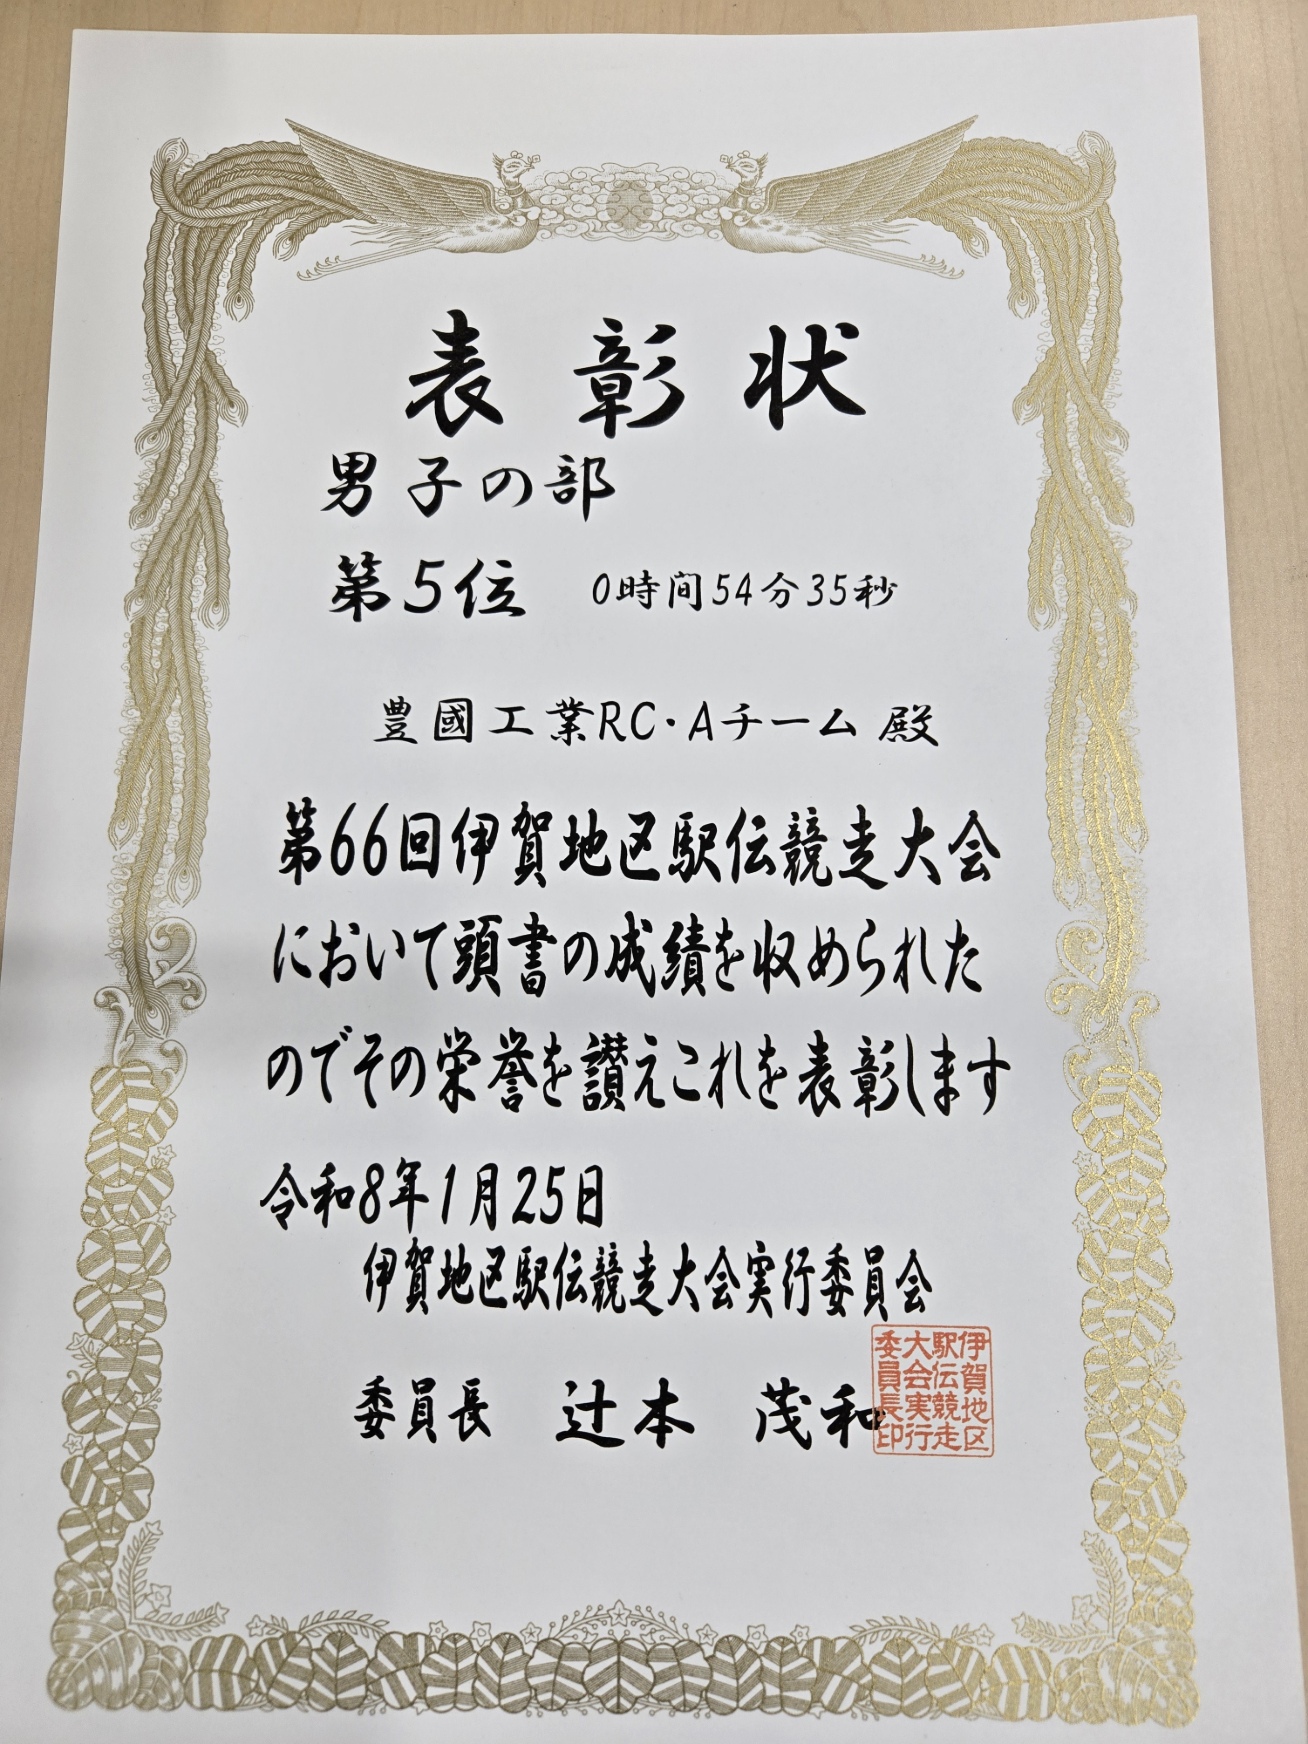 表彰状
男子の部
第5位 0時間54分35秒
豊國工業RC・Aチーム 殿
第66回伊賀地区駅伝競走大会
において頭書の成績を収められた
のでその栄誉を讃えこれを表彰します
令和8年1月25日
伊賀地区駅伝競走大会実行委員会
委員長 辻本 茂和
伊賀地区
駅伝競走
大会実行
委員長印